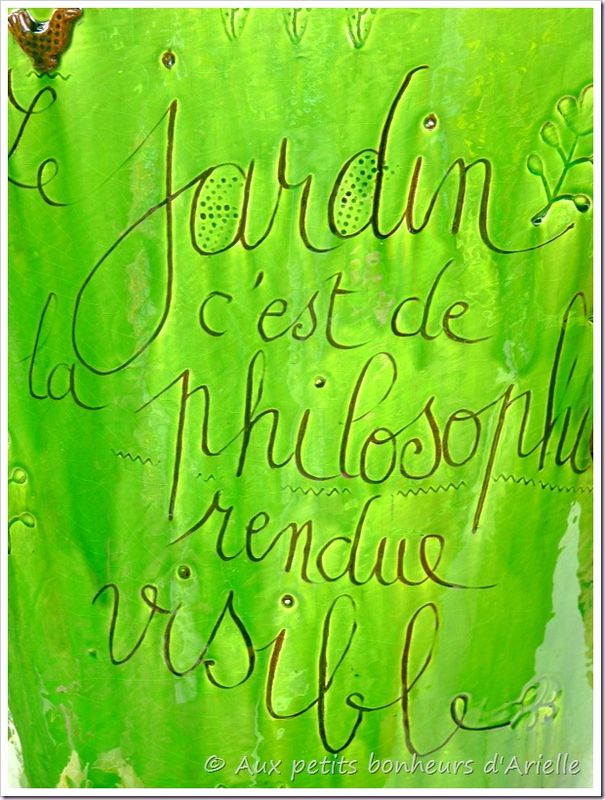 Le jardin
c'est de
la philosophie
rendue
visible
© Aux petits bonheurs d'Arielle